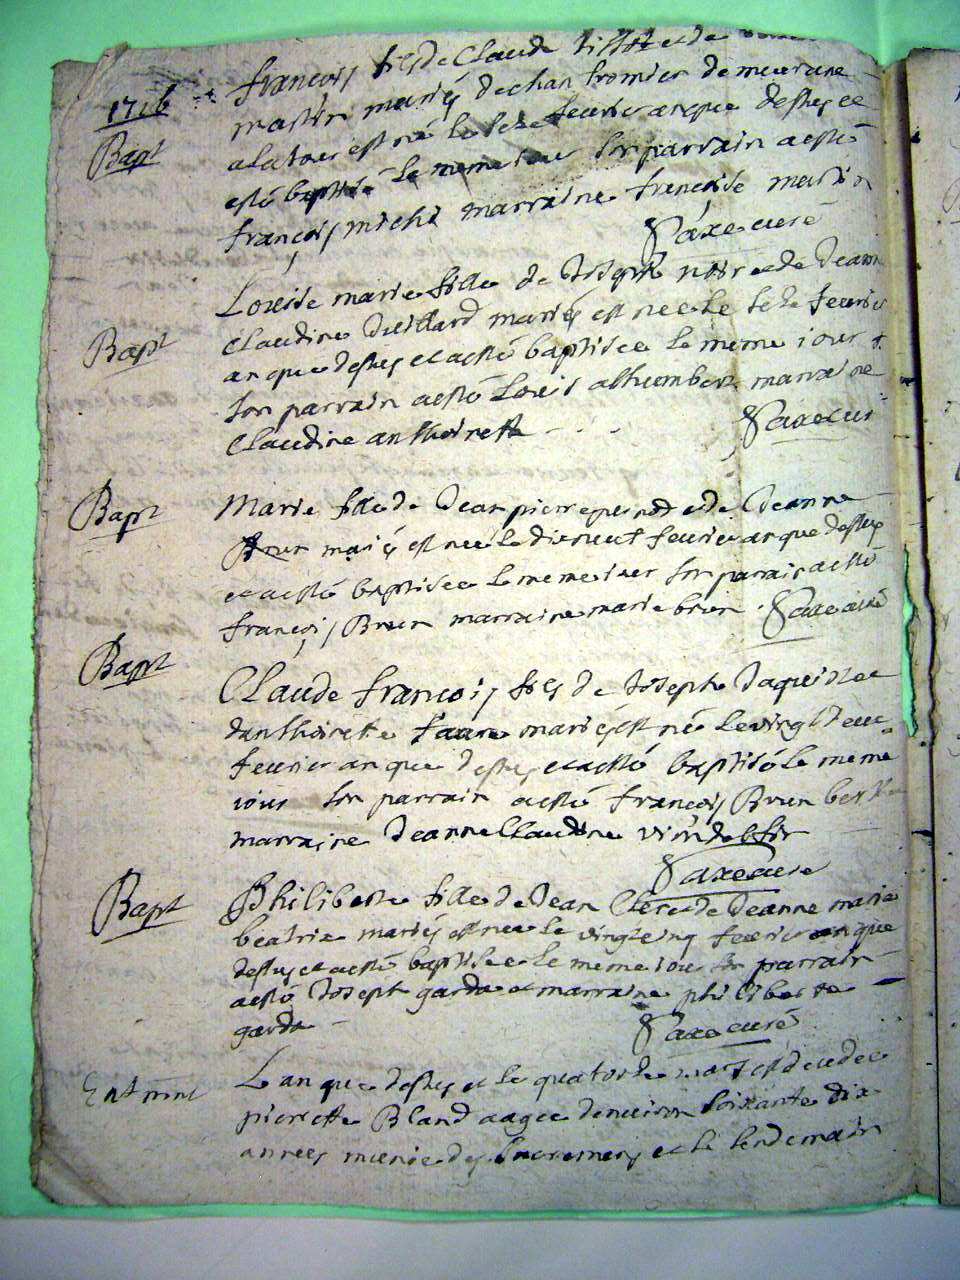 1716
Bapt
françois fils de Claude tissot et de
martin mariés de chanfromier demeurant
a la tour est né le seize feurier an que dessus et
esté baptisé le meme iour son parrain a esté
françois michi marraine françoise martin
Saxe curé
Bapt
Louise marie fille de Joseph et de Jeanne
Claudine Duillard mariés est nee le seize feurier
an que dessus et a esté baptisee le meme iour
son parrain a esté Louis marraine
Claudine anthoinette
Saxe curé
Bapt
Marie fille de Jean pierre et de Jeanne
Brun mariés est nee le dixneuf feurier an que dessus
et a esté baptisee le meme iour son parain a esté
françois Brun marraine marie brun. Saxe curé
Bapt
Claude françois fils de Joseph Jaquis et
danthoinette faure mariés est né le vingt deux
feurier an que dessus et a esté baptisé le meme
iour son parrain a esté françois Brun
marraine Jeanne Claudine
Saxe curé
Bapt
Philiberte fille de Jean Clerc et de Jeanne marie
beatrix mariés est nee le vingt cinq feurier an que
dessus et a esté baptisee le meme iour son parrain
a esté Joseph garda et marraine philiberte
garda
Saxe curé
Enterrmnt
L an que dessus et le quatorze mars est decedee
pierrette Bland aagee denuiron soixante dix
annees munie des sacremens et le lendemain